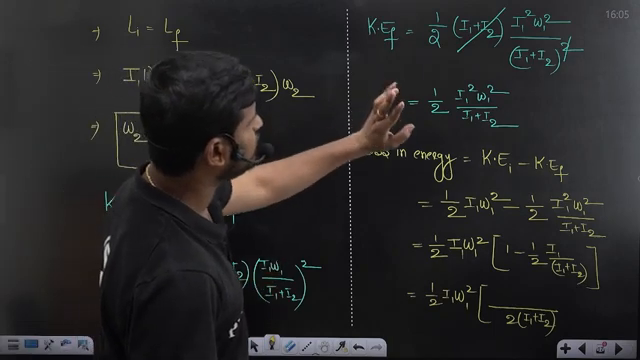 16:05
⇒ L₁ = L_f
⇒ I₁ I₂) ω₂
⇒ ω₂
K
I₂) (I₁ω₁ / (I₁+I₂))²
K·E_f = 1/2 (I₁+I₂) I₁²ω₁² / (I₁+I₂)²
= 1/2 I₁²ω₁² / (I₁+I₂)
in energy = K·E_i − K·E_f
= 1/2 I₁ω₁² − 1/2 I₁²ω₁² / (I₁+I₂)
= 1/2 I₁ω₁² [1 − 1/2 I₁ / (I₁+I₂)]
= 1/2 I₁ω₁² [ / 2(I₁+I₂)